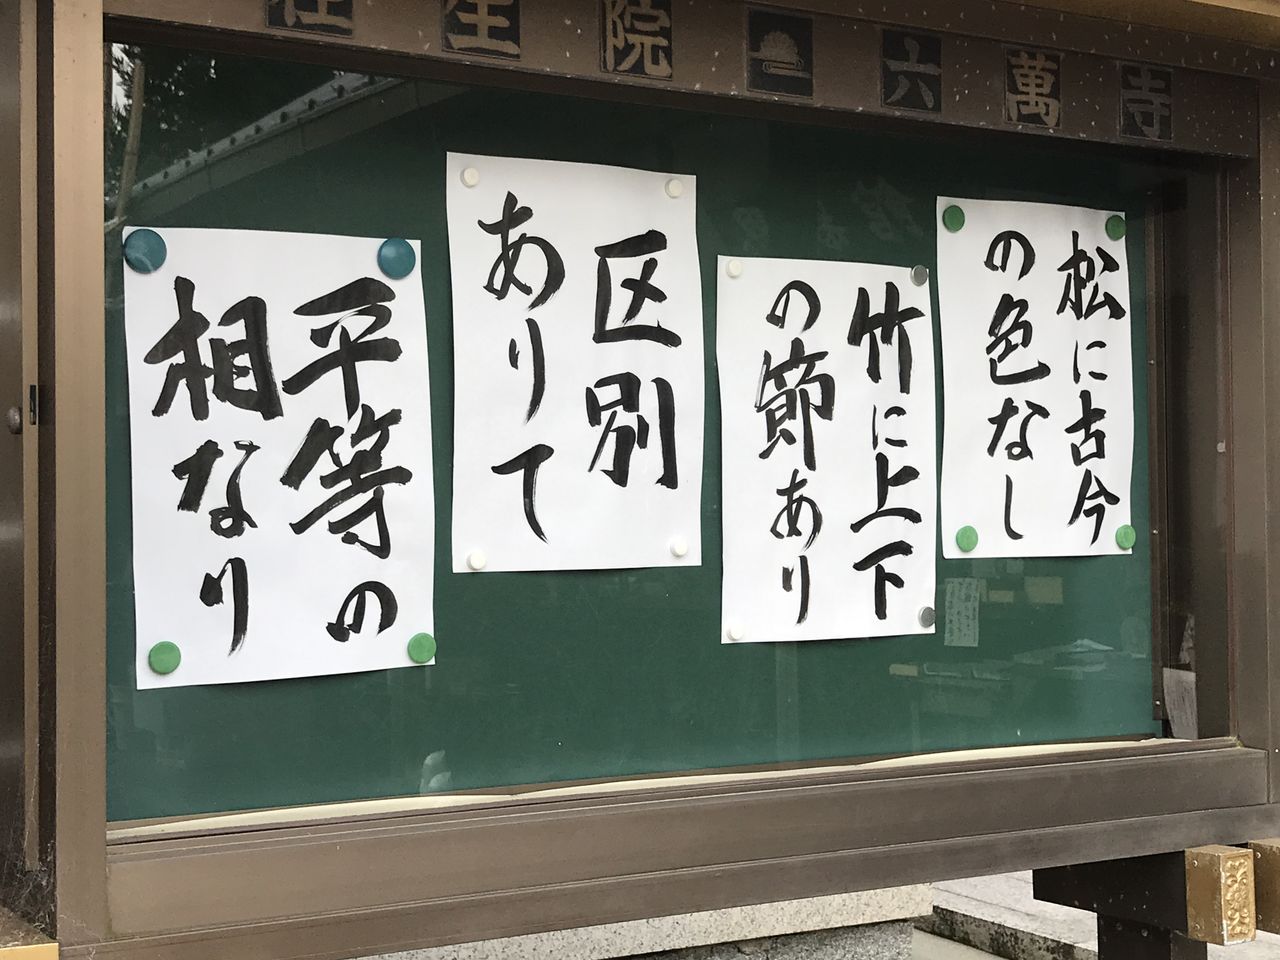 往生院 六萬寺
松に古今
の色なし
竹に上下
の節あり
区別
ありて
平等の
相なり